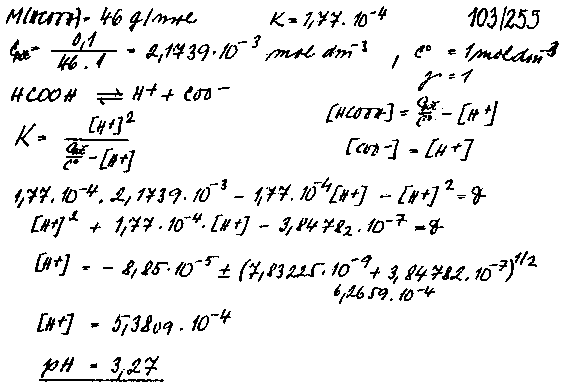 M(HCOOH) = 46 g/mol K = 1,77·10⁻⁴ 103/255
= 0,1 / 46·1 = 2,1739·10⁻³ mol dm⁻³, c° = 1 mol dm⁻³
γ = 1
HCOOH ⇌ H+ + COO⁻ [HCOOH] = /c° − [H+]
K = [H+]² / /c° − [H+] [COO⁻] = [H+]
1,77·10⁻⁴·2,1739·10⁻³ − 1,77·10⁻⁴[H+] − [H+]² = 0
[H+]² + 1,77·10⁻⁴·[H+] − 3,84782·10⁻⁷ = 0
[H+] = − 8,85·10⁻⁵ ± (7,83225·10⁻⁹ + 3,84782·10⁻⁷)^1/2
6,2659·10⁻⁴
[H+] = 5,3809·10⁻⁴
pH = 3,27